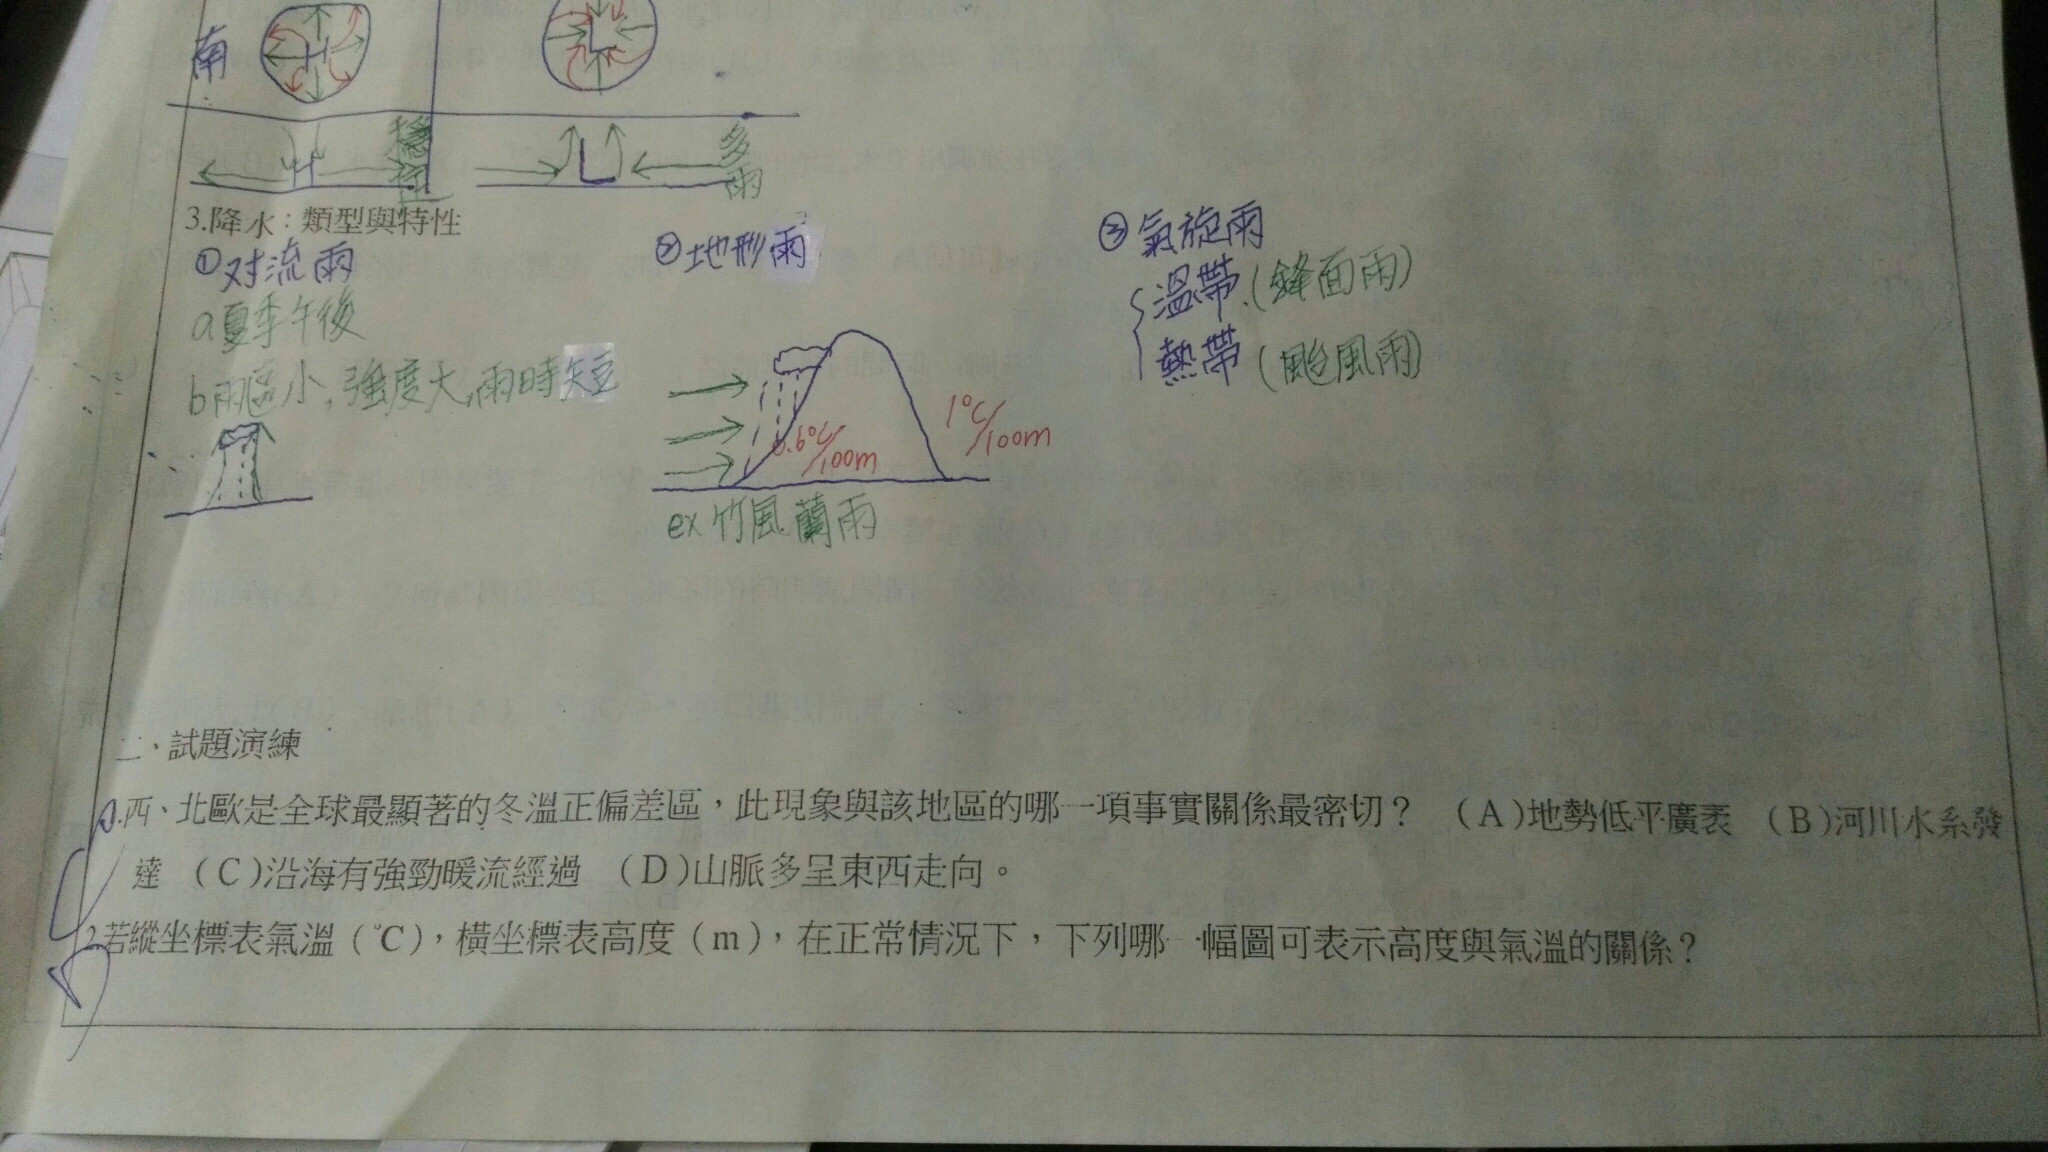 南 H L
H 穩定 L 多雨
3.降水：類型與特性
①对流雨
a夏季午後
b雨區小,強度大,雨時短
②地形雨
0.6℃/100m
1℃/100m
ex 竹風蘭雨
③氣旋雨
溫帶(鋒面雨)
熱帶(颱風雨)
二、試題演練
1.西、北歐是全球最顯著的冬溫正偏差區，此現象與該地區的哪一項事實關係最密切？ (A)地勢低平廣袤 (B)河川水系發
達 (C)沿海有強勁暖流經過 (D)山脈多呈東西走向。
2.若縱坐標表氣溫(℃)，橫坐標表高度(m)，在正常情況下，下列哪一幅圖可表示高度與氣溫的關係？